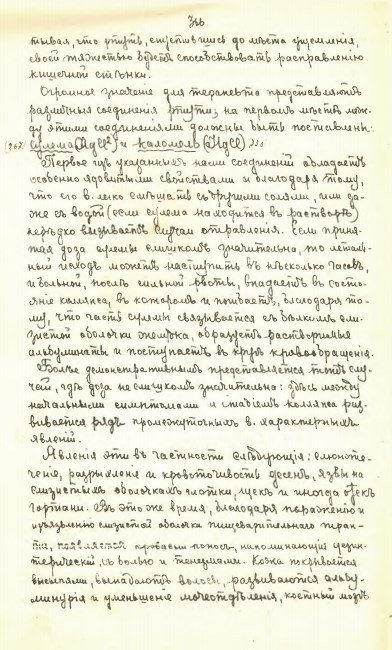 366
тывая, что ртуть, спустившись до мѣста ущемленія,
своей тяжестью будетъ способствовать расправленію
кишечной стѣнки.
Огромное значеніе для терапевта представляютъ
различныя соединенія ртути; на первомъ мѣстѣ меж-
ду этими соединеніями должны быть поставлены:
(267) сулема (HgCl²) и каломель (HgCl)
Первое изъ указанныхъ нами соединеній обладаетъ
особенно ядовитыми свойствами и благодаря тому,
что его в. легко смѣшать съ другими солями, или да-
же съ водой (если сулема находится въ растворѣ)
нерѣдко вызываетъ случаи отравленія. Если приня-
тая доза сулемы слишкомъ значительна, то леталь-
ный исходъ можетъ наступить въ нѣсколько часовъ,
а больной, послѣ сильной рвоты, впадаетъ въ состо-
яніе коллапса, въ которомъ и погибаетъ, благодаря то-
му, что часть сулемы связывается съ бѣлкомъ сли-
зистой оболочки желудка, образуетъ растворимые
альбуминаты и поступаетъ въ кругъ кровообращенія.
Болѣе демонстративнымъ представляется тотъ слу-
чай, гдѣ доза не слишкомъ значительна: здѣсь между
начальными симптомами и стадіемъ коллапса раз-
вивается рядъ промежуточныхъ в. характерныхъ
явленій.
Явленія эти въ частности слѣдующія: слюноте-
ченіе, разрыхленіе и кровоточивость десенъ, язвы на
слизистыхъ оболочкахъ глотки, щекъ и иногда отекъ
гортани. Въ это же время, благодаря пораженію и
изъязвленію слизистой оболочки пищеварительнаго трак-
та, появляется кровавый поносъ, напоминающій дизен-
терическій, съ болью и тенезмами. Кожа покрывается
высыпями, выпадаютъ волосы, развиваются альбу-
минурія и уменьшеніе мочеотдѣленія, костный мозгъ